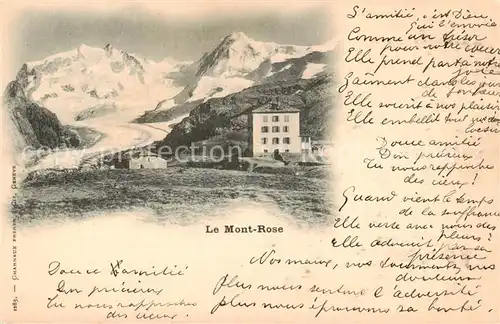 S'amitié, c'est Dieu,
Qui l'envoie
Comme un trésor
pour notre cœur
Elle prend part à notre
joie
aiment dans les jours
de
Elle sourit à nos plaisirs
Elle embellit tout
Douce amitié
Don précieux
Tu nous rapproches
des cieux!
Quand vient le temps
de la souffrance
Elle verse avec nous des
pleurs!
Elle adoucit par sa
présence
Nos maux, nos tourments, nos
douleurs
Plus nous sentons l'adversité
plus nous éprouvons sa bonté.
Douce Amitié
Don précieux
Tu nous rapproches
des cieux.
Le Mont-Rose
1285. — Charnaux Frères & Cie, Genève